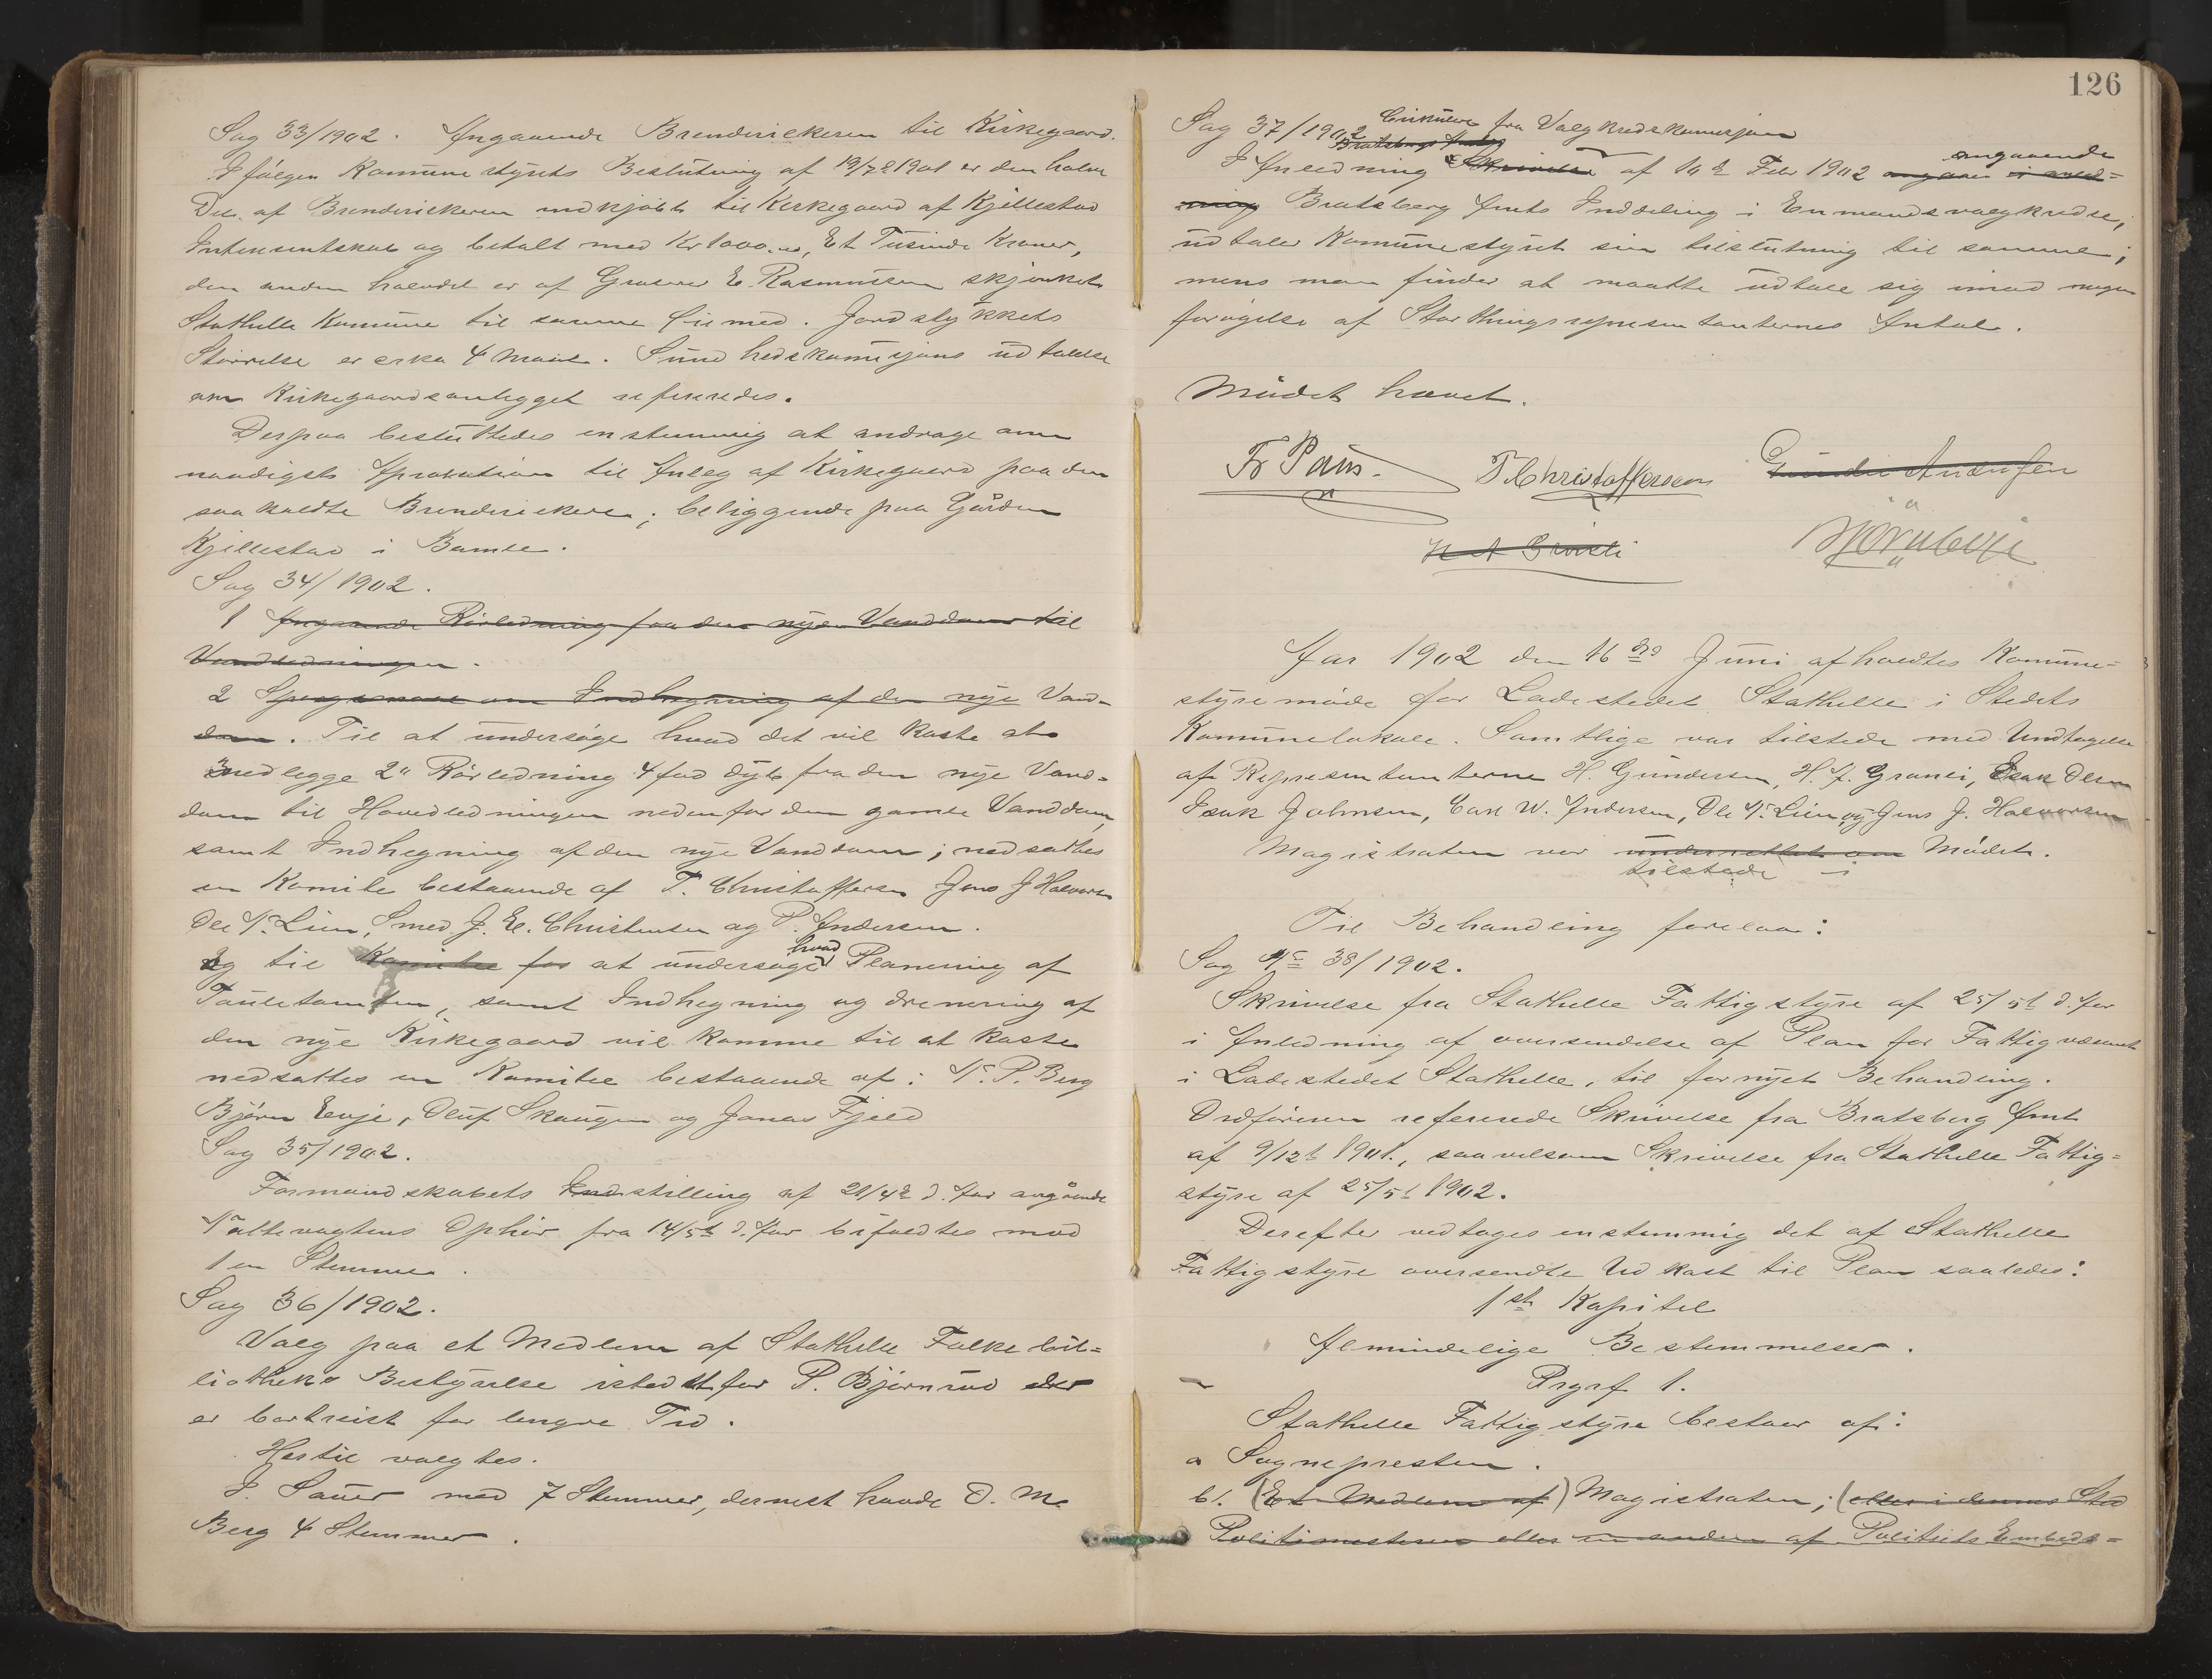 Sag 33/1902. Angaaende Brenderiekeren til Kirkegaard.
Ifølgen Komune styrets Beslutning af 19/7 1901 er den halve
Del af Brenderiekeren indkjøbt til Kirkegaard af Kjellestad
Intresentskab og betalt med Kr 1000.00, Et Tusinde Kroner,
den anden halvdel er af Groserer E. Rasmussen skjenket
Stathelle Komune til samme Øiemed. Jordstykkets
Størrelse er cirka 4 Maal. Sundhedskomisjons udtalelse
om Kirkegaardsanlegget refereredes.
Derpaa besluttedes enstemmig at andrage om
naadigst Aprobation til Anleg af Kirkegaard paa den
saa kaldte Brenderiekeren; beliggende paa Gården
Kjellestad i Bamle.
Sag 34/1902.
1 Angaaende Rørledning fra den nye Vanddam til
Vandledningen.
2 Spørgsmaal om Indhegning af den nye Vand-
dam. Til at undersøge hvad det vil koste at
nedlegge 2" Rørledning 4 fod dyb fra den nye Vand-
dam til Hovedledningen nedenfor den gamle Vanddam,
samt Indhegning af den nye Vanddam; nedsattes
en Komite bestaaende af T. Christoffersen Jens J Halvorsen
Ole N. Lien, Smed J. E. Christensen og P. Andersen.
Og til Komitee for at undersøge hvad Planering af
Touletomten, samt Indhegning og drenering af
den nye Kirkegaard vil komme til at koste
nedsattes en Komitee bestaaende af: N. P. Berg
Bjørn Evje, Oluf Skaugen og Jonas Fjeld
Sag 35/1902.
Formandskabets Indstilling af 21/4 d. Aar angående
Nattevagtens Ophør fra 14/5 d. Aar bifaldtes mod
1 en Stemme.
Sag 36/1902.
Valg paa et Medlem af Stathelle Folkebib-
liotheks Bestyrelse istedetfor P. Bjørnrud der
er bortreist for lengre Tid.
Hertil valgtes.
J. Sauer med 7 Stemmer, dernest havde O. M.
Berg 4 Stemmer.
126
Sag 37/1902 Cirkulære fra Valgkredskomisjon
Bratsberg Amt
I Anledning Skrivelse af 10 Febr 1902 angaaende
angaar i anled-
ning Bratsberg Amts Inddeling i Enmandsvalgkredse,
udtaler Komunestyret sin tilslutning til samme;
mens man finder at maatte udtale sig imod nogen
forøgelse af Storthingsrepresentanternes Antal.
Mødet hævet.
Fr Paus. T. Christoffersen Gunder Andersen
Bjørn Evje
Aar 1902 den 16de Juni afholdtes Komune-
styremøde for Ladestedet Stathelle i Stedets
Komunelokale. Samtlige var tilstede med Undtagelse
af Representanterne H. Gundersen, H. A. Granli, Isak Olsen
Isak Johnsen, Carl W. Andersen, Ole N. Lien og Jens J. Halvorsen
Magistraten var underrettet om Mødet.
tilstede i
Til Behandling forelaa:
Sag No 38/1902.
Skrivelse fra Stathelle Fattigstyre af 25/5 d. Aar
i Anledning af oversendelse af Plan for Fattigvæsenet
i Ladestedet Stathelle, til fornyet Behandling.
Ordføreren refererede Skrivelse fra Bratsberg Amt
af 9/12 1901, saavelsom Skrivelse fra Stathelle Fattig-
styre af 25/5 1902.
Derefter vedtoges enstemmig det af Stathelle
Fattigstyre oversendte Udkast til Plan saaledes:
1st Kapitel
Almindelige Bestemmelser.
Prgrf 1.
Stathelle Fattigstyre bestaar af:
a Sognepresten.
b). (Et Medlem af) Magistraten; (eller i dennes Sted
Politimesteren eller en anden af Politiets Embeds-